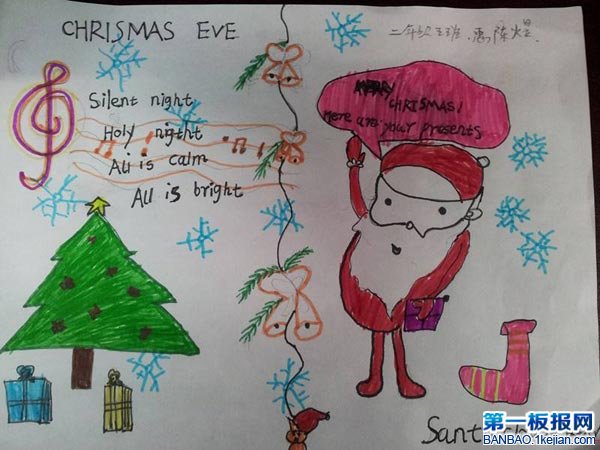 CHRISMAS EVE
二年级五班
Silent night
Holy night
All is calm
All is bright
MERRY
CHRISMAS!
Here are your presents
Sant
第一板报网
BANBAO.1kejian.com